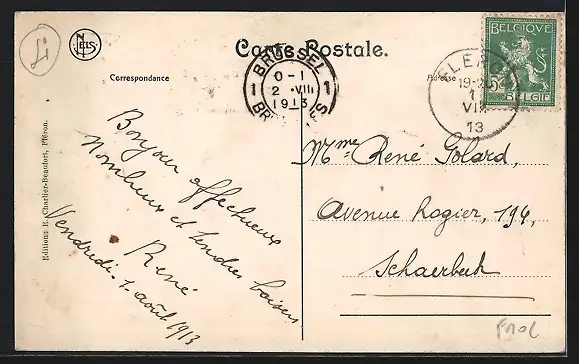 NELS
Carte Postale.
Correspondance
Adresse
BRUXELLES
0-1
2 VIII
1913
1 1
BRUSSEL
FLÉRON
19-20
1
VIII
13
BELGIQUE
BELGIË
Edition: E. Charlier-Beaufort, Fléron.
Bonjour affectueux
Nombreux et tendres baisers
René
Vendredi. 1 août 1913
Mme René Golard,
Avenue Rogier, 194,
Schaerbeek